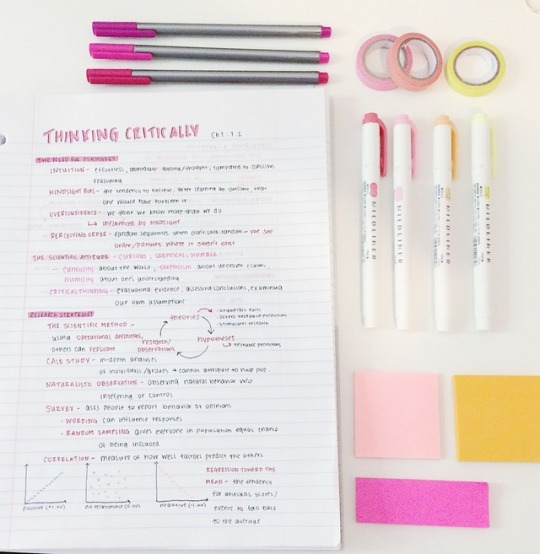 THINKING CRITICALLY Ch 1: 1.1
THE NEED FOR PSYCHOLOGY
INTUITION - effortless, immediate feeling/thought, compared to
reasoning
HINDSIGHT BIAS - the tendency to believe, after learning an outcome, that
one would have foreseen it
OVERCONFIDENCE - we think we know more than we do
↳ influenced by hindsight
PERCEIVING ORDER - random sequences often don't look random - we see
order/patterns where it doesn't exist
THE SCIENTIFIC ATTITUDE - CURIOUS, SKEPTICAL, HUMBLE
- curiosity about the world, skepticism about
humility about own understanding
- CRITICAL THINKING - evaluating evidence, assessing conclusions, examining
our own assumptions
RESEARCH STRATEGIES
THE SCIENTIFIC METHOD -
using operational definitions,
others can replicate
theories
hypotheses
research/
observations
CASE STUDY - in-depth analyses
of individuals/groups → cannot attribute to huge pop.
NATURALISTIC OBSERVATION - observing natural behavior w/o
interfering or control
SURVEY - asks people to report behavior or opinions
· WORDING can influence responses
· RANDOM SAMPLING gives everyone in population equal chance
of being included
CORRELATION - measure of how well factors predict the others
positive (+1.00)
no relationship (0.00)
negative (-1.00)
REGRESSION TOWARD THE
MEAN - the tendency
for unusual scores/
events to fall back
to the average
MILDLINER
MILDLINER
MILDLINER
MILDLINER